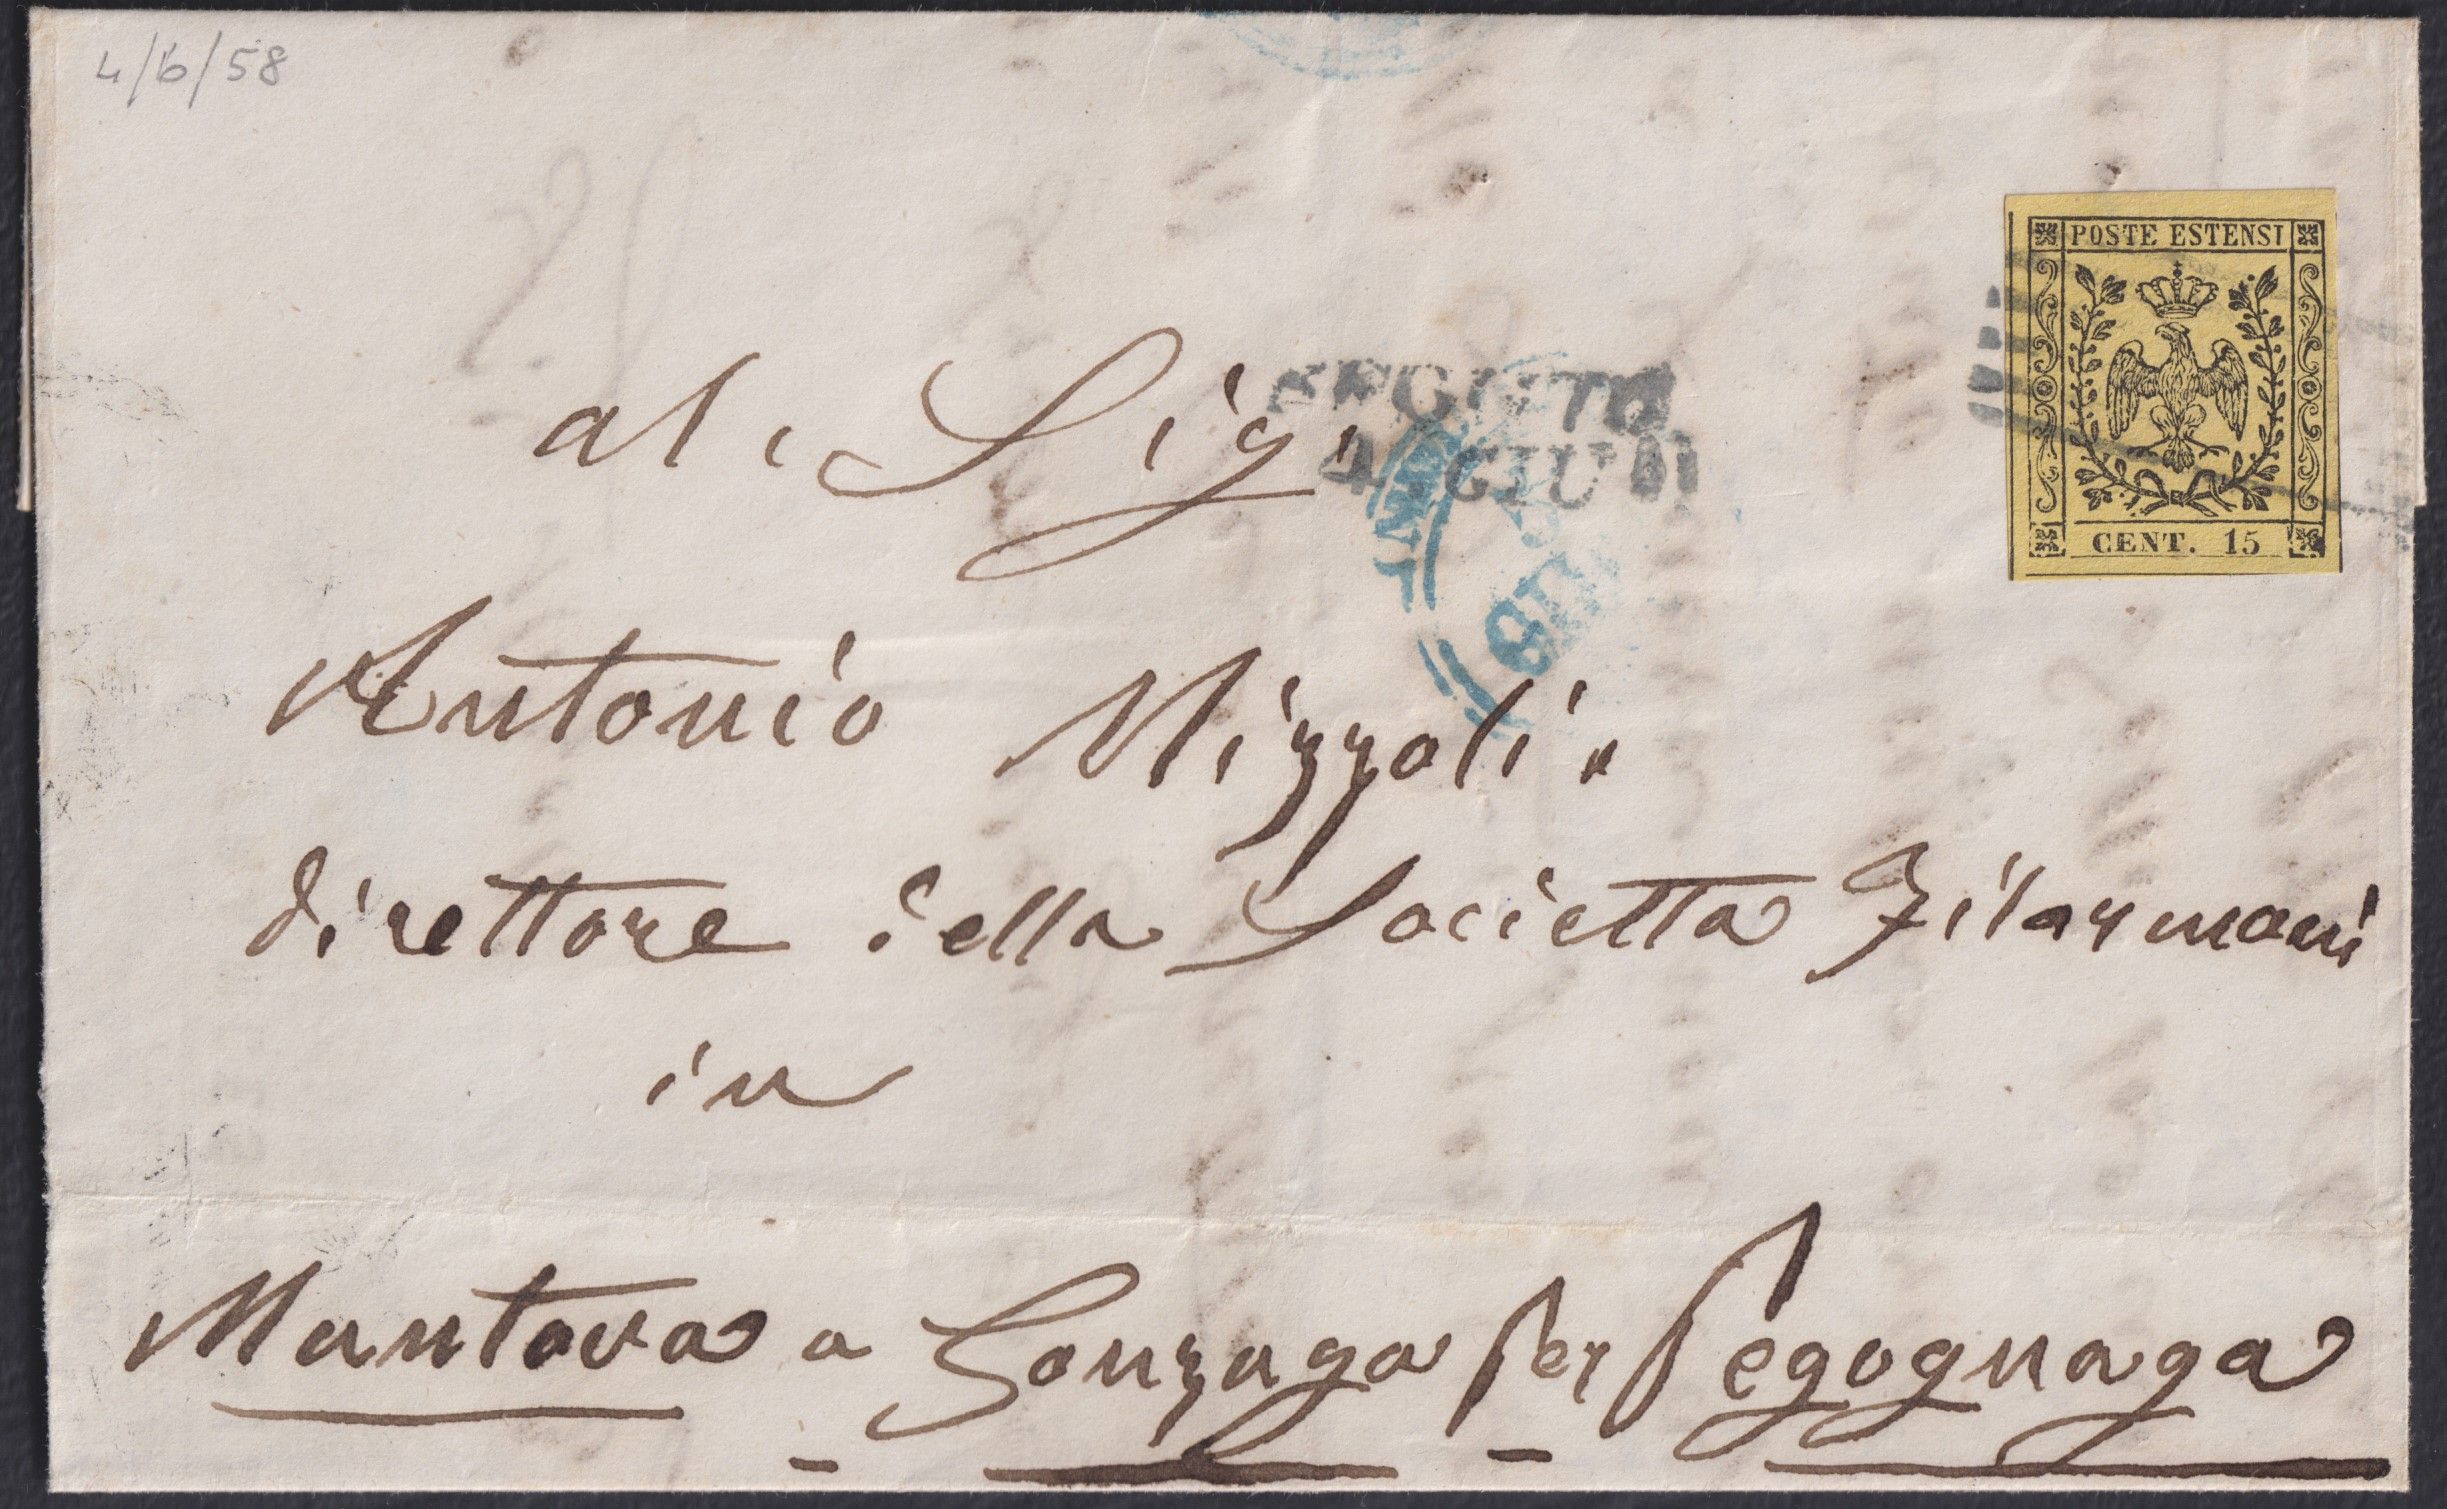 4/6/58
POSTE ESTENSI
CENT. 15
al. Sig.
4 GIU
GIU
Antonio Mizzoli.
direttore della Societta Filarmoni
in
Mantova a Gonzaga per Pegognaga